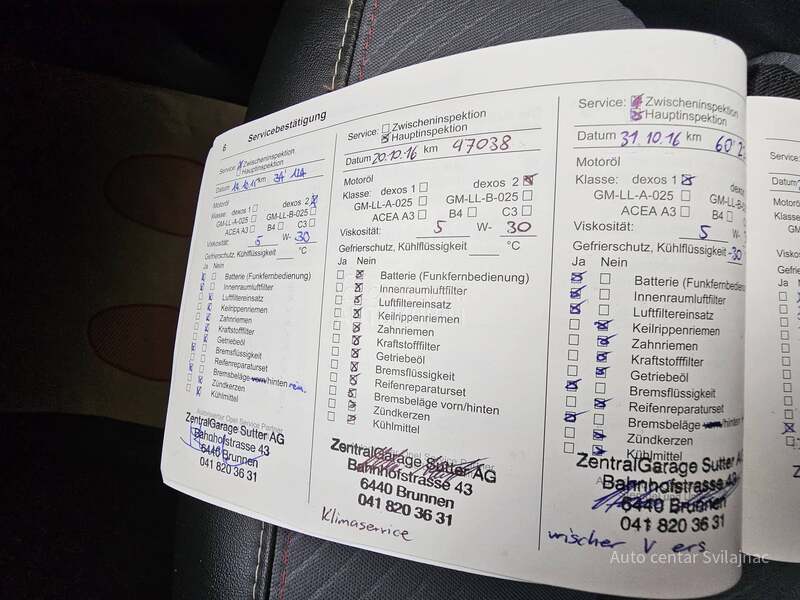 6
Servicebestätigung
Service: Zwischeninspektion
Hauptinspektion
Datum km
Motoröl
Klasse: dexos 1 dexos 2
GM-LL-A-025 GM-LL-B-025
ACEA A3 B4 C3
Viskosität: 5 W- 30
Gefrierschutz, Kühlflüssigkeit °C
Ja Nein
Batterie (Funkfernbedienung)
Innenraumluftfilter
Luftfiltereinsatz
Keilrippenriemen
Zahnriemen
Kraftstofffilter
Getriebeöl
Bremsflüssigkeit
Reifenreparaturset
Bremsbeläge vorn/hinten
Zündkerzen
Kühlmittel
ZentralGarage Sutter AG
Bahnhofstrasse 43
6440 Brunnen
041 820 36 31
Service: Zwischeninspektion
Hauptinspektion
Datum 20.10.16 km 47038
Motoröl
Klasse: dexos 1 dexos 2
GM-LL-A-025 GM-LL-B-025
ACEA A3 B4 C3
Viskosität: 5 W- 30
Gefrierschutz, Kühlflüssigkeit °C
Ja Nein
Batterie (Funkfernbedienung)
Innenraumluftfilter
Luftfiltereinsatz
Keilrippenriemen
Zahnriemen
Kraftstofffilter
Getriebeöl
Bremsflüssigkeit
Reifenreparaturset
Bremsbeläge vorn/hinten
Zündkerzen
Kühlmittel
ZentralGarage Sutter AG
Bahnhofstrasse 43
6440 Brunnen
041 820 36 31
Klimaservice
Service: Zwischeninspektion
Hauptinspektion
Datum 31.10.16 km
Motoröl
Klasse: dexos 1 dexos 2
GM-LL-A-025 GM-LL-B-025
ACEA A3 B4 C3
Viskosität: 5 W- 30
Gefrierschutz, Kühlflüssigkeit -30
Ja Nein
Batterie (Funkfernbedienu
Innenraumluftfilter
Luftfiltereinsatz
Keilrippenriemen
Zahnriemen
Kraftstofffilter
Getriebeöl
Bremsflüssigkeit
Reifenreparaturset
Bremsbeläge vorn/hinten
Zündkerzen
Kühlmittel
ZentralGarage Sutter A
Bahnhofstrasse 43
6440 Brunnen
041 820 36 31
wischer V ers
Service:
Datum
Motoröl
Klasse:
Viskos
Gefrier
Ja N
Auto centar Svilajnac